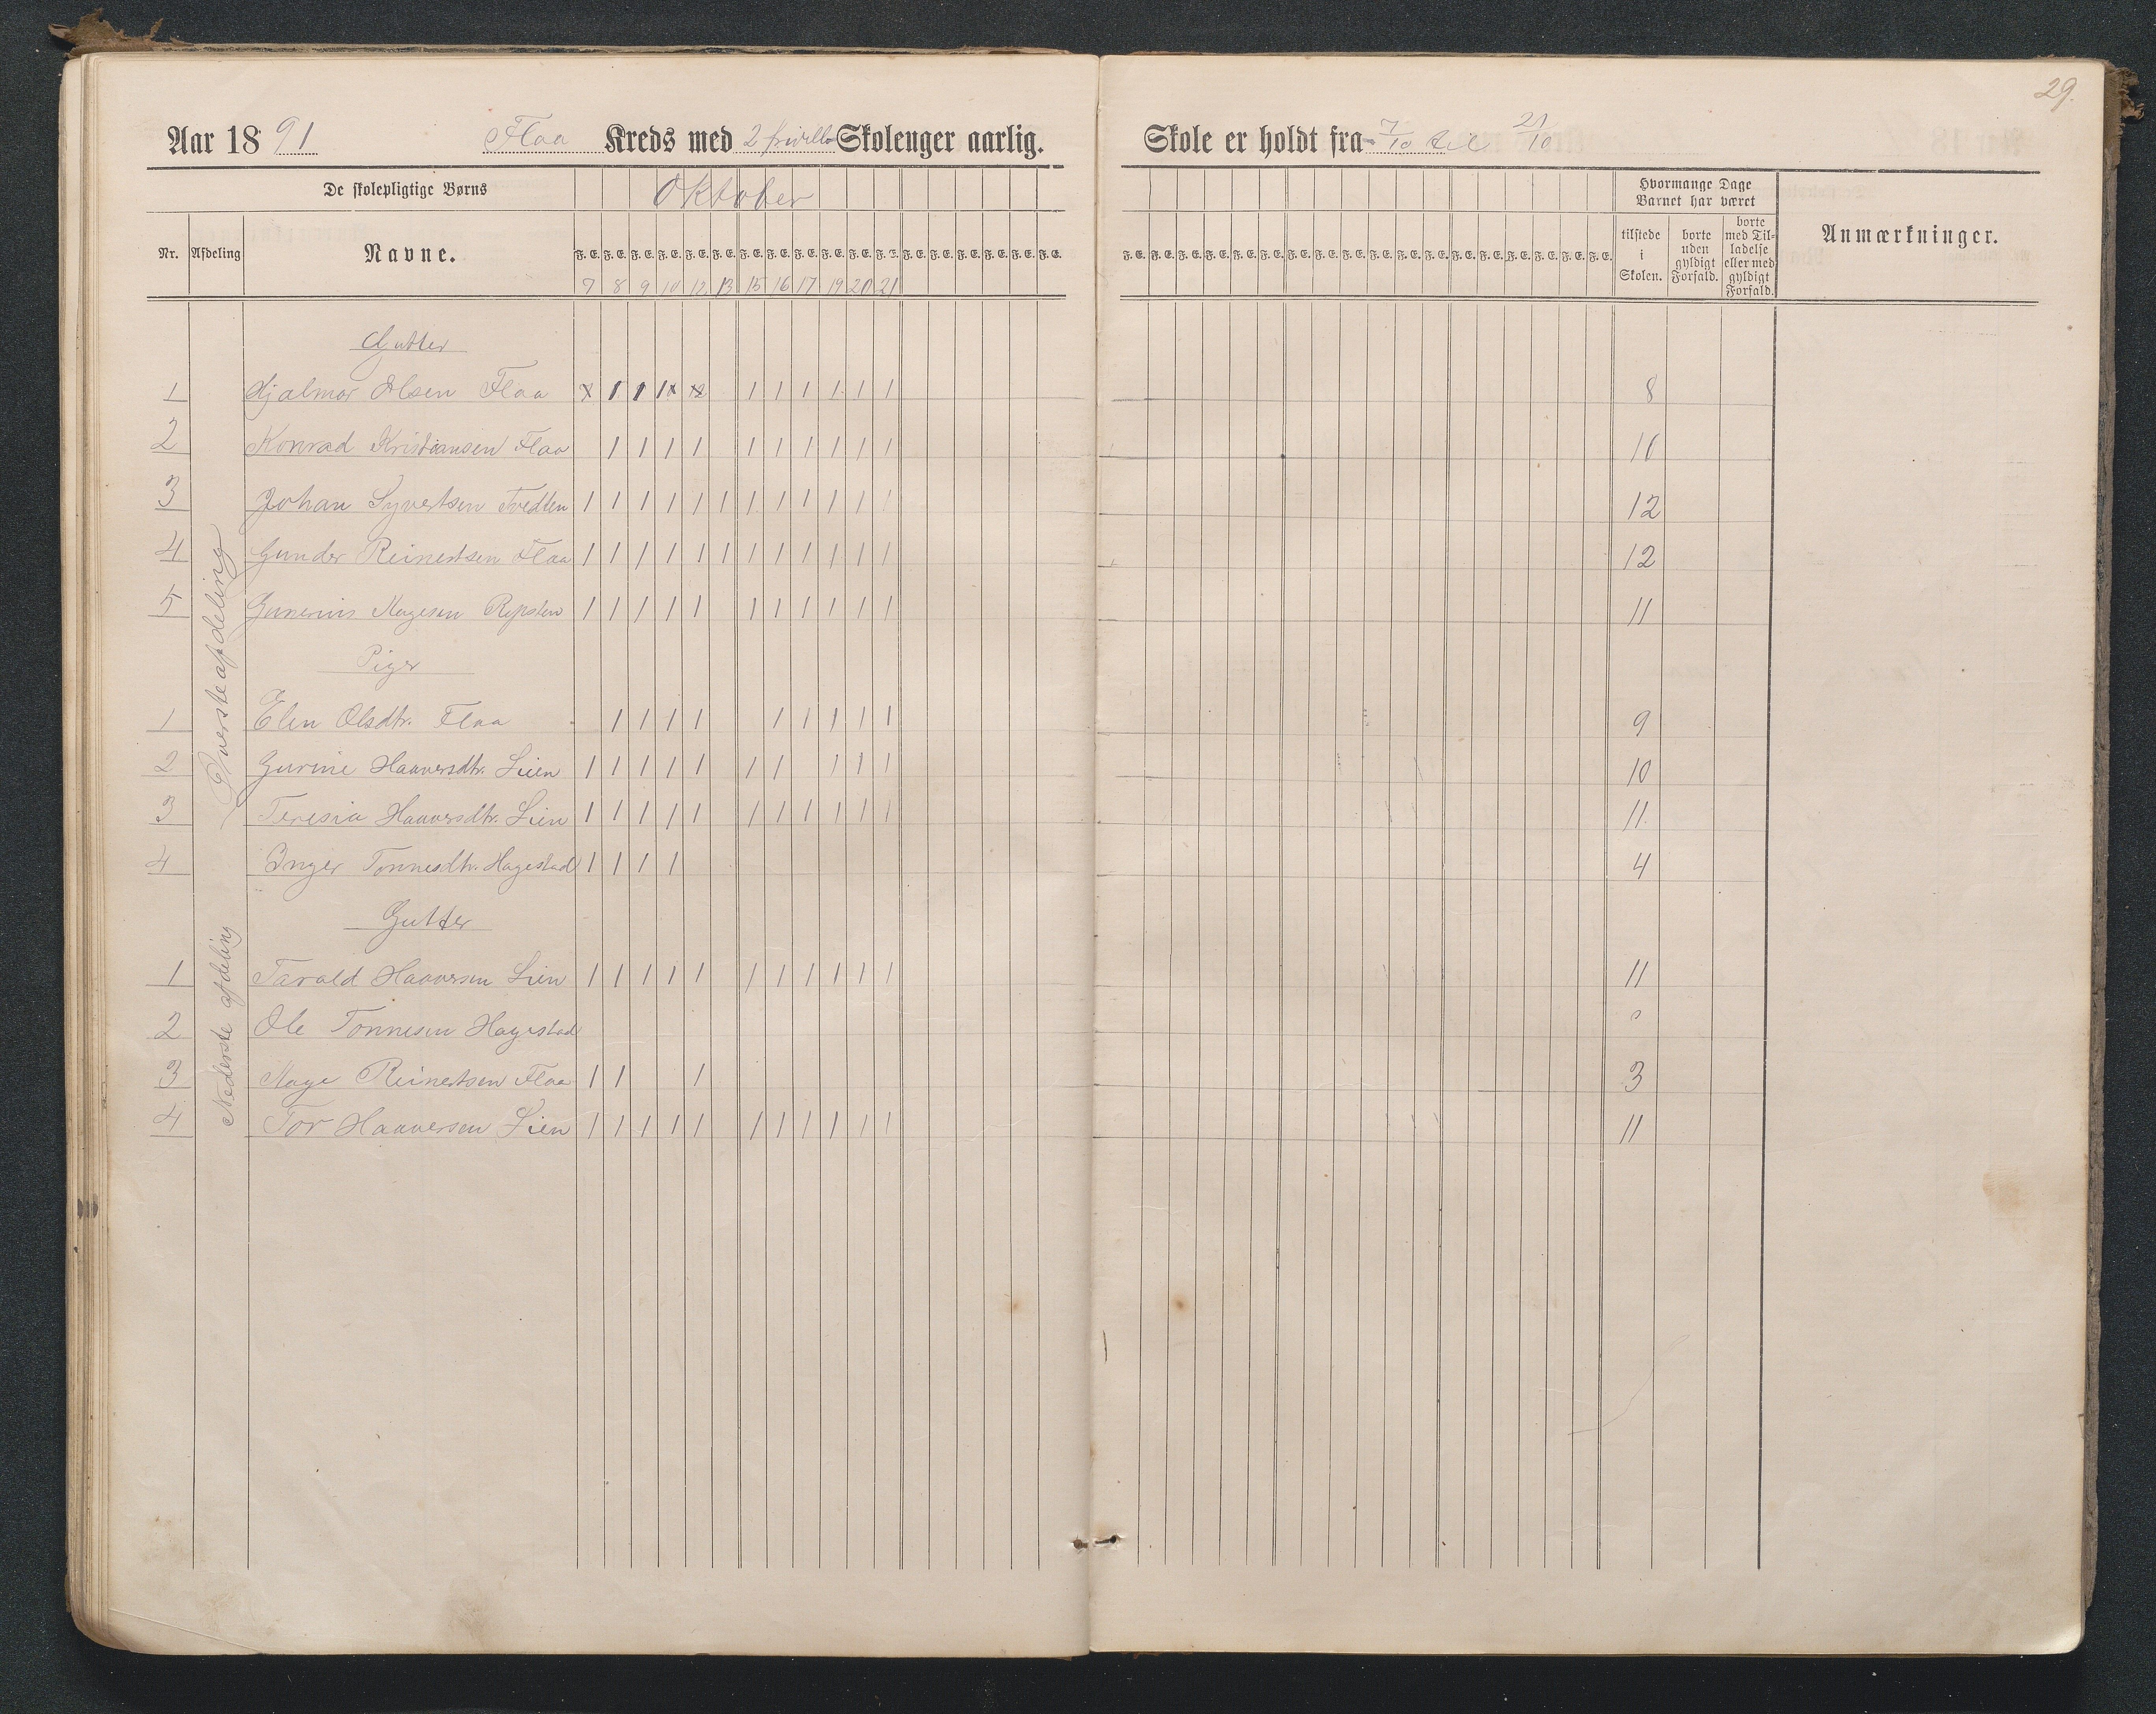 29.
Aar 1891 Flaa Kreds med 2 frivillo Skolenger aarlig. Skole er holdt fra 7/10 til 21/10
De skolepligtige Børns Oktober Hvormange Dage Barnet har været
Nr. Afdeling Navne. F. E. F. E. F. E. F. E. F. E. F. E. F. E. F. E. F. E. F. E. F. E. F. E. F. E. F. E. F. E. F. E. F. E. F. E. tilstede i Skolen. borte uden gyldigt Forfald. borte med Tilladelse eller med gyldigt Forfald. Anmærkninger.
7 8 9 10 12 13 15 16 17 19 20 21
Øverste afdeling
Gutter
1 Hjalmar Olsen Flaa x 1 1 1x x 1 1 1 1 1 1 8
2 Konrad Kristiansen Flaa 1 1 1 1 1 1 1 1 1 1 10
3 Johan Syvertsen Tvedten 1 1 1 1 1 1 1 1 1 1 1 1 12
4 Gunder Reinertsen Flaa 1 1 1 1 1 1 1 1 1 1 1 1 12
5 Gunerius Aagesen Repsten 1 1 1 1 1 1 1 1 1 1 1 11
Piger
1 Elen Olsdtr. Flaa 1 1 1 1 1 1 1 1 1 9
2 Gurine Haaversdtr. Lien 1 1 1 1 1 1 1 1 1 1 10
3 Teresia Haaversdtr. Lien 1 1 1 1 1 1 1 1 1 1 1 11
4 Inger Tonnesdtr. Hagestad 1 1 1 1 4
Nederste afdeling
Gutter
1 Tarald Haaversen Lien 1 1 1 1 1 1 1 1 1 1 1 11
2 Ole Tonnesen Hagestad 0
3 Aage Reinertsen Flaa 1 1 1 3
4 Tor Haaversen Lien 1 1 1 1 1 1 1 1 1 1 1 11